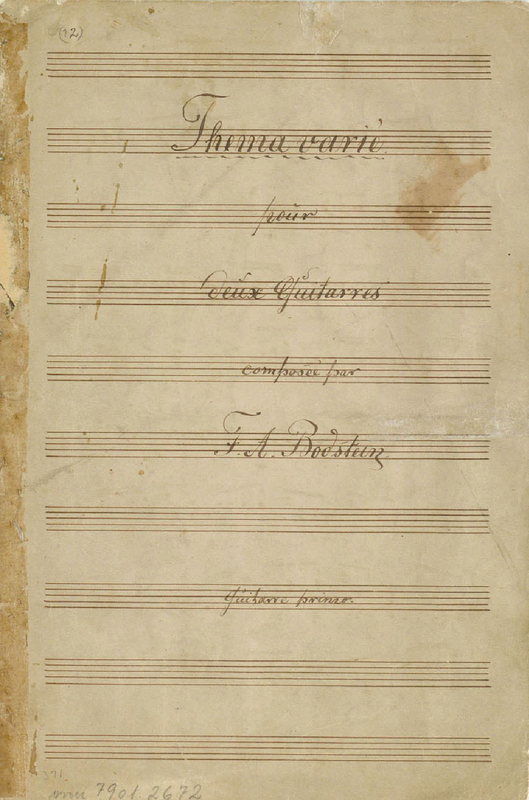 (12)
Thema varié
pour
deux Guitarres
composée par
F. A. Bodstein
Guitarre primo.
mu 7901.2672